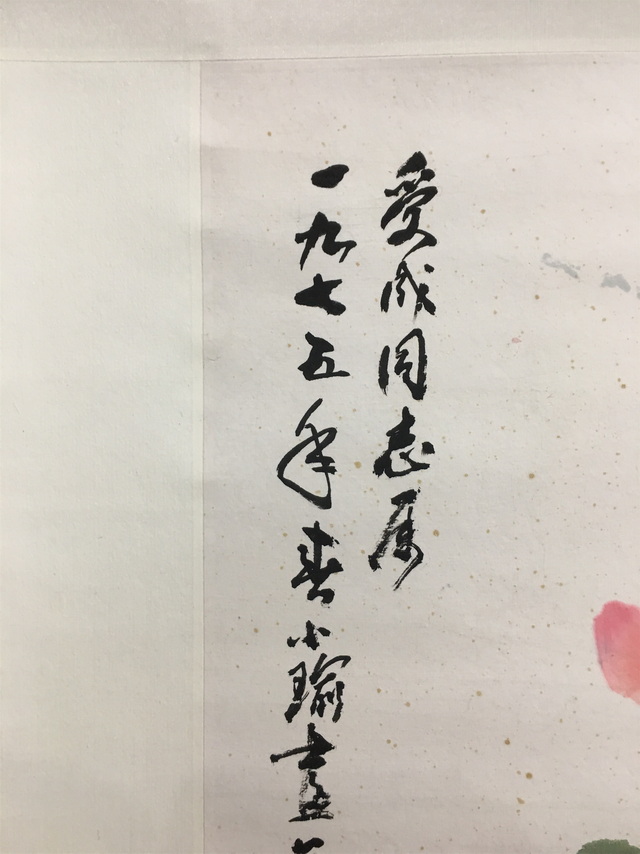 受成同志属
一九七五年春小瑜画